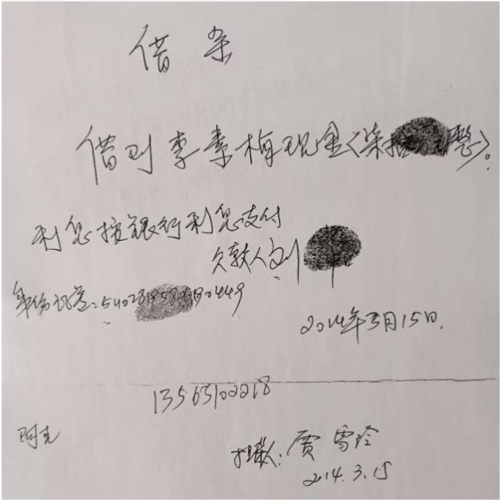 借条
借到李素梅现金(柒拾 整)。
利息按银行利息支付
欠款人刘
身份证号:
2014年3月15日.
13565102218
阿克
担保人:贾雪玲
214.3.15